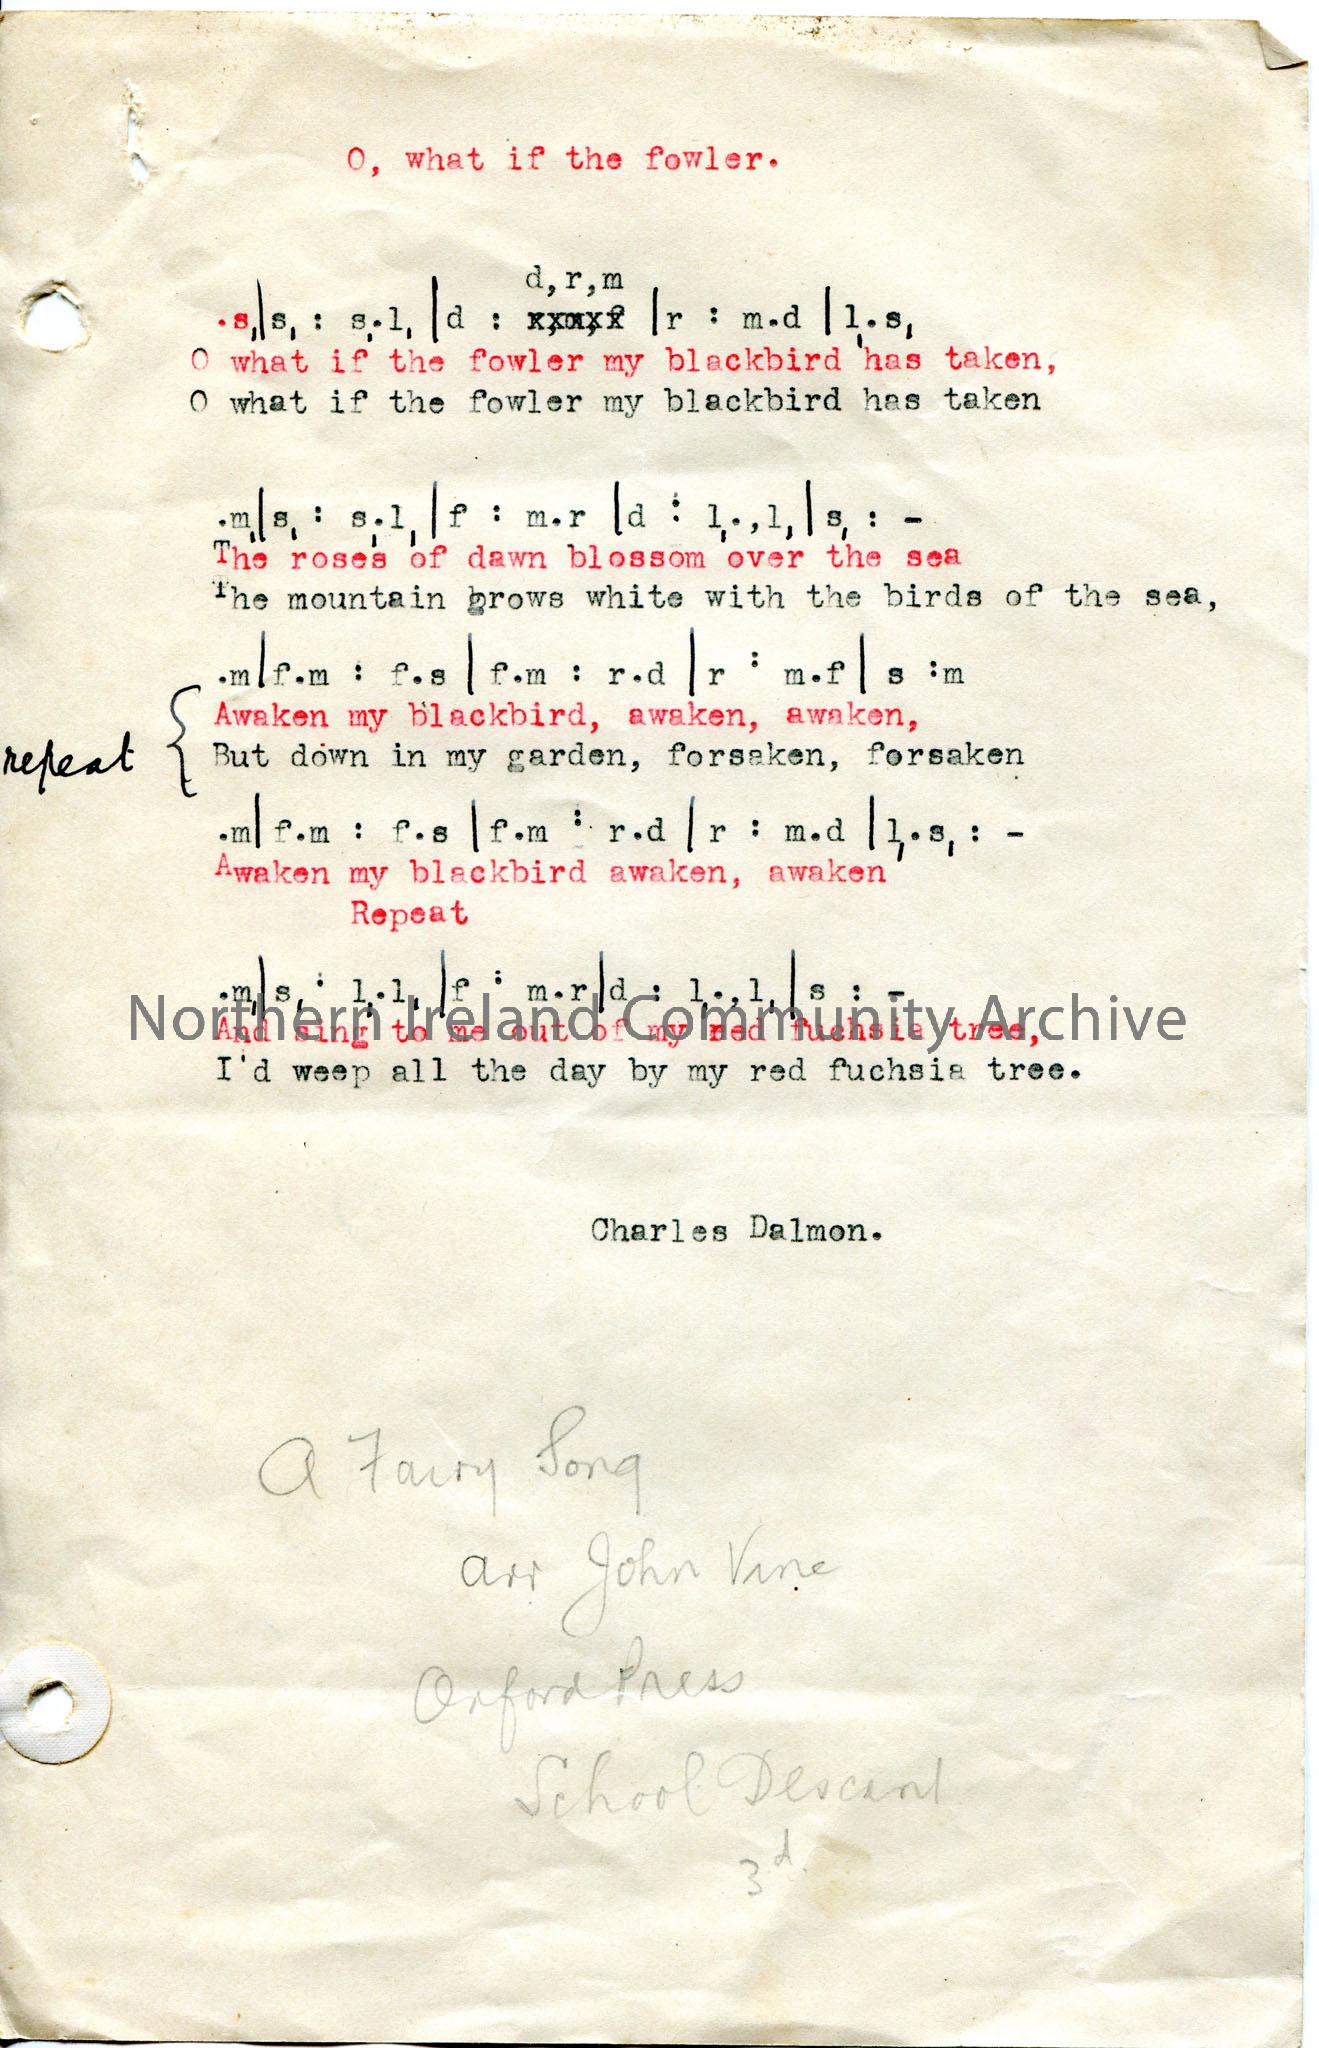 O, what if the fowler.
d,r,m
.s,|s, : s,.l, |d : |r : m.d |l,.s,
O what if the fowler my blackbird has taken,
O what if the fowler my blackbird has taken
.m,|s, : s,.l, |f : m.r |d : l,.,l, |s, : -
The roses of dawn blossom over the sea
The mountain grows white with the birds of the sea,
.m|f.m : f.s |f.m : r.d |r : m.f| s :m
Awaken my blackbird, awaken, awaken,
repeat { But down in my garden, forsaken, forsaken
.m|f.m : f.s |f.m : r.d |r : m.d |l,.s, : -
Awaken my blackbird awaken, awaken
Repeat
.m,|s, : l,.l, |f : m.r|d : l,.,l, |s : -
Northern Ireland Community Archive
And sing to me out of my red fuchsia tree,
I'd weep all the day by my red fuchsia tree.
Charles Dalmon.
A Fairy Song
arr John Vine
Oxford Press
School Descant
3d.